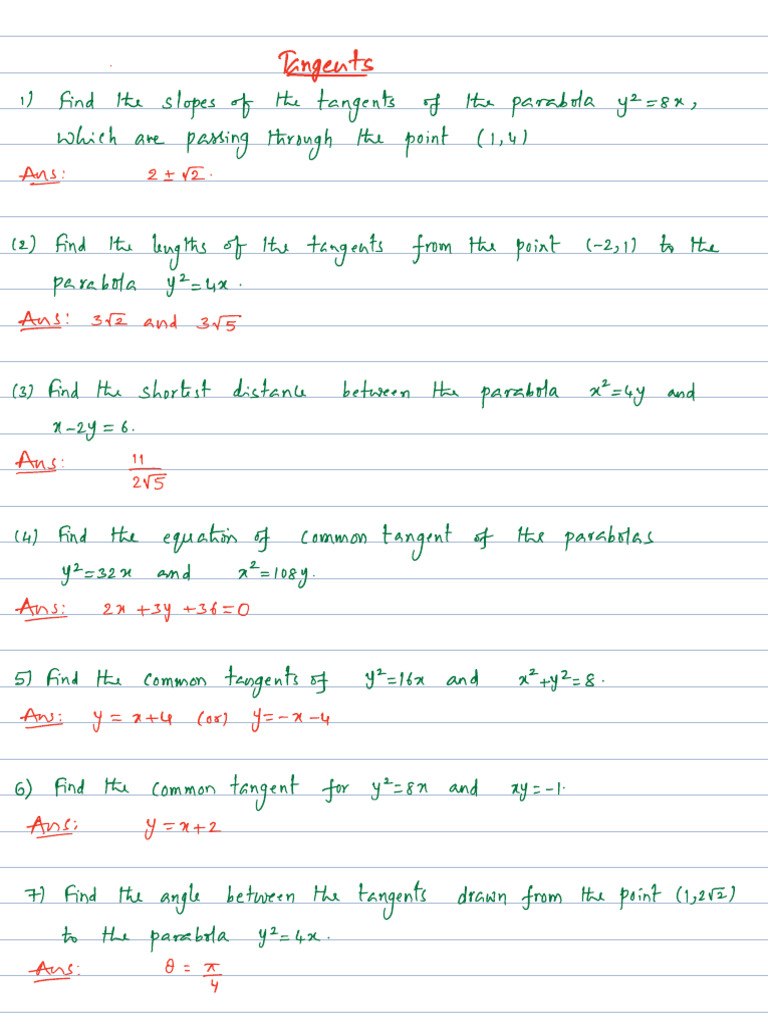 Tangents
1) Find the slopes of the tangents of the parabola y²=8x,
which are passing through the point (1,4)
Ans: 2±√2.
(2) Find the lengths of the tangents from the point (-2,1) to the
parabola y²=4x.
Ans: 3√2 and 3√5
(3) Find the shortest distance between the parabola x²=4y and
x-2y=6.
Ans: 11/2√5
(4) Find the equation of common tangent of the parabolas
y²=32x and x²=108y.
Ans: 2x+3y+36=0
5) Find the common tangents of y²=16x and x²+y²=8.
Ans: y=x+4 (or) y=-x-4
6) Find the common tangent for y²=8x and xy=-1.
Ans: y=x+2
7) Find the angle between the tangents drawn from the point (1,2√2)
to the parabola y²=4x.
Ans: θ=π/4